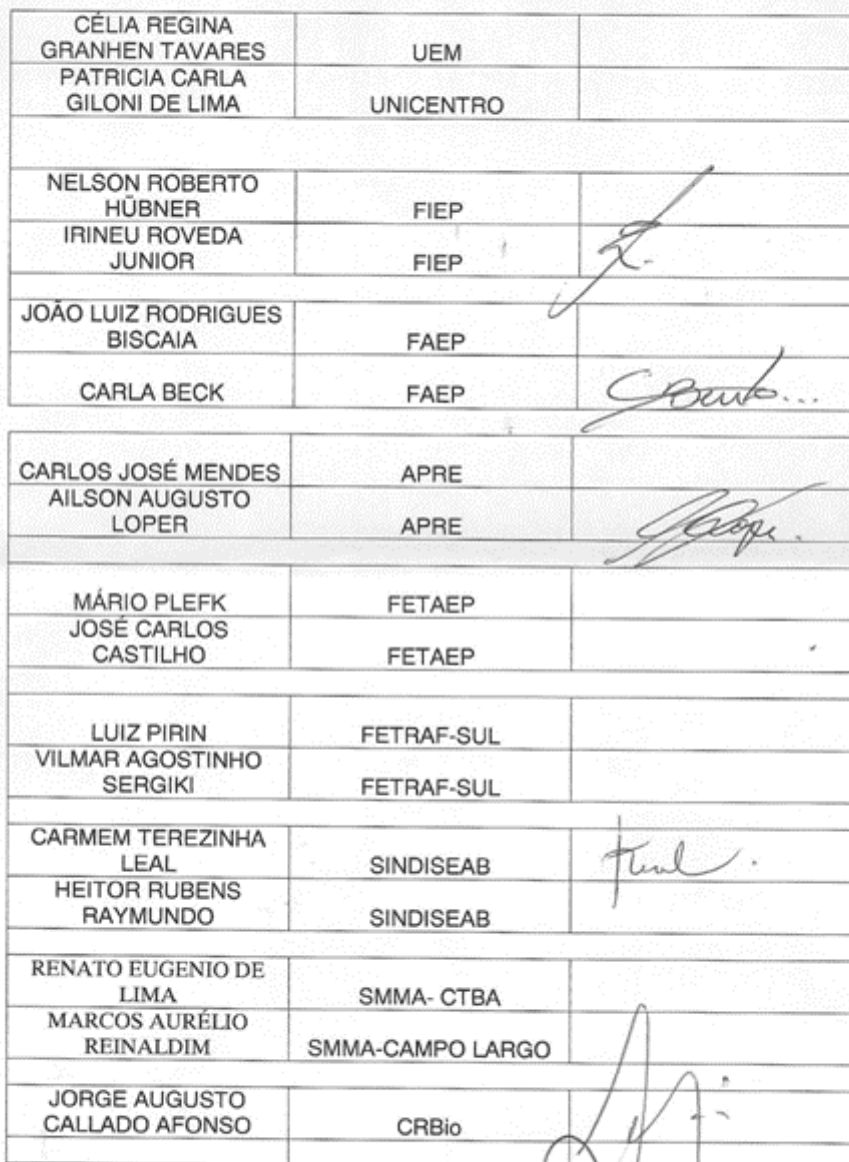 CÉLIA REGINA
GRANHEN TAVARES UEM
PATRICIA CARLA
GILONI DE LIMA UNICENTRO
NELSON ROBERTO
HÜBNER FIEP
IRINEU ROVEDA
JUNIOR FIEP
JOÃO LUIZ RODRIGUES
BISCAIA FAEP
CARLA BECK FAEP
CARLOS JOSÉ MENDES APRE
AILSON AUGUSTO
LOPER APRE
MÁRIO PLEFK FETAEP
JOSÉ CARLOS
CASTILHO FETAEP
LUIZ PIRIN FETRAF-SUL
VILMAR AGOSTINHO
SERGIKI FETRAF-SUL
CARMEM TEREZINHA
LEAL SINDISEAB
HEITOR RUBENS
RAYMUNDO SINDISEAB
RENATO EUGENIO DE
LIMA SMMA- CTBA
MARCOS AURÉLIO
REINALDIM SMMA-CAMPO LARGO
JORGE AUGUSTO
CALLADO AFONSO CRBio